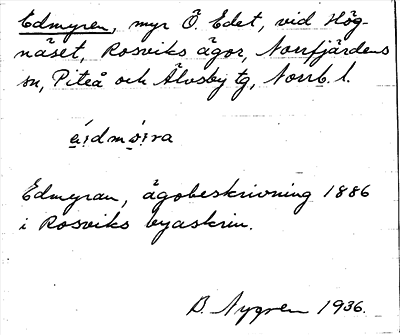 Edmyren, myr Ö. Edet, vid Hög-
näset, Rosviks ägor, Norrfjärdens
sn, Piteå och Älvsby tg, Norrb. l.
Edmyran, ägobeskrivning 1886
i Rosviks byaskrin.
B. Nygren 1936.